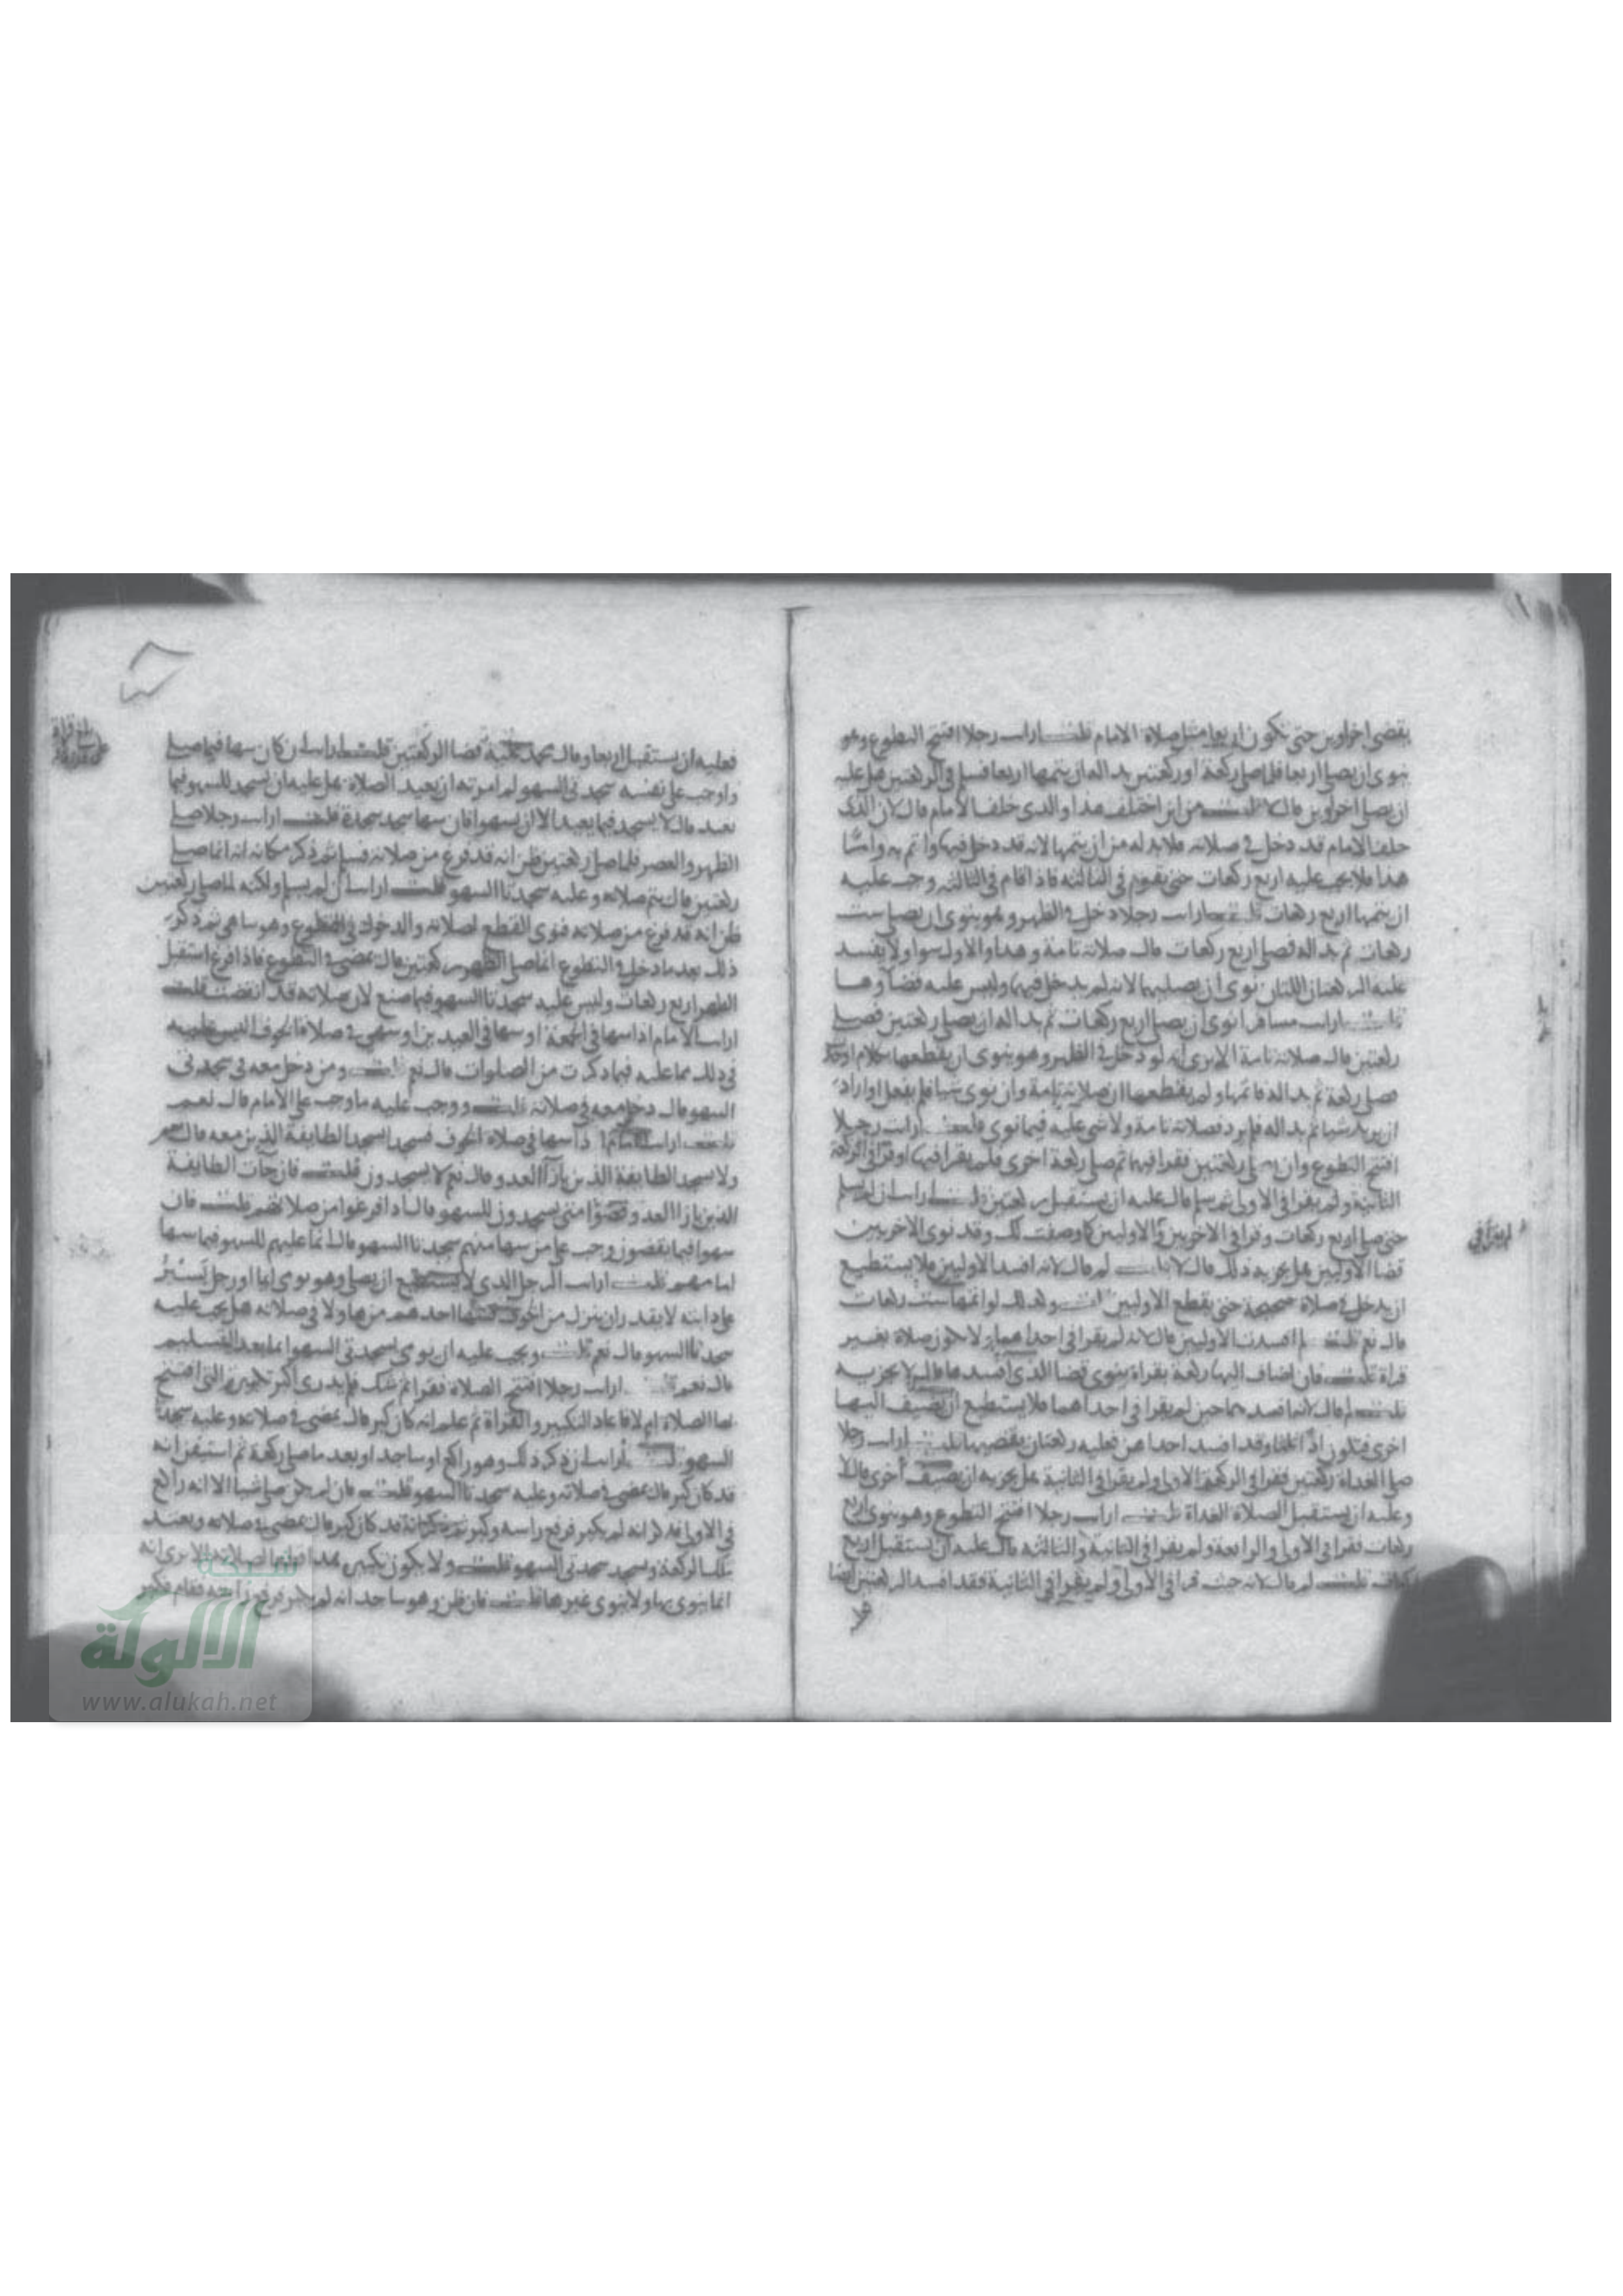 يقضي اخراوين حتى تكون اربعا مثل صلاة الامام قلت ارايت رجلا افتتح التطوع وهو
ينوي ان يصلي اربعا فلما صلى ركعة او ركعتين بدا له ان يتمها اربعا فسلم في الركعتين هل عليه
ان يصلي اخراوين قال لا قلت من اين اختلف هذا والذي خلف الامام قال لان الذي
خلف الامام قد دخل في صلاته فلا بد له من ان يتمها لانه قد دخل فيها واتم به واما
هذا فلا يجب عليه اربع ركعات حتى يقوم في الثالثة فاذا قام في الثالثة وجب عليه
ان يتمها اربع ركعات قلت ارايت رجلا دخل في الظهر وهو ينوي ان يصلي ست
ركعات ثم بدا له فصلى اربع ركعات قال صلاته تامة وهذا والاول سوا ولا يفسد
عليه الركعتان اللتان نوى ان يصليهما لانه لم يدخل فيها وليس عليه قضاوها
قلت ارايت مسافرا نوى ان يصلي اربع ركعات ثم بدا له ان يصلي ركعتين فصلى
ركعتين قال صلاته تامة الا يرى انه لو دخل في الظهر وهو ينوي ان يقطعها بكلام او
صلى ركعة ثم بدا له فاتمها ولم يقطعها ان صلاته تامة وان نوى شيا فلم يفعل او اراد
ان يزيد شيا ثم بدا له فلم يزد فصلاته تامة ولا شي عليه فيما نوى قلت ارايت رجلا
افتتح التطوع وان صلى ركعتين فقرا فيهما ثم صلى ركعة اخرى فلم يقرا فيها او قرا في الركعة
الثانية ولم يقرا في الاولى ثم سلم قال عليه ان يستقبل ركعتين قلت ارايت ان لم يسلم
حتى صلى اربع ركعات وقرا في الاخريين والاوليين كما وصفت لك وقد نوى الاخريين
قضا الاوليين هل يجزيه ذلك قال لا قلت لم قال لانه افسد الاوليين فلا يستطيع
ان يدخل في صلاة صحيحة حتى يقطع الاوليين قلت وكذلك لو اتمها ست ركعات
قال نعم قلت لم افسدت الاوليين قال لانه لم يقرا في احداهما ولا تكون صلاة بغير
قراة قلت فان اضاف اليها ركعة بقراة ينوي قضا الذي افسدها قال لا يجزيه
قلت لم قال لانها فسدت حين لم يقرا في احداهما فلا يستطيع ان يضيف اليها
اخرى فتكون اذا ثلثا وقد افسد احداهن فعليه ركعتان يقضيهما قلت ارايت رجلا
صلى الغداة ركعتين فقرا في الركعة الاولى ولم يقرا في الثانية هل يجزيه ان يضيف اخرى قال لا
وعليه ان يستقبل الصلاة الغداة قلت ارايت رجلا افتتح التطوع وهو ينوي اربع
ركعات فقرا في الاولى والرابعة ولم يقرا في الثانية والثالثة قال عليه ان يستقبل اربع
ركعات قلت لم قال لانه حيث قرا في الاولى ولم يقرا في الثانية فقد افسد الركعتين ايضا
لم يقرا في
فعليه ان يستقبل اربعا وقال محمد عليه قضا الركعتين قلت ارايت ان كان سها فيما صلى
واوجب على نفسه سجدتي السهو لم امرته ان يعيد الصلاة هل عليه ان يسجد للسهو فيما
يعيد قال لا يسجد فيما يعيد الا ان يسهو فان سها سجد سجدة قلت ارايت رجلا صلى
الظهر والعصر فلما صلى ركعتين ظن انه قد فرغ من صلاته فسلم ثم ذكر مكانه انه انما صلى
ركعتين قال يتم صلاته وعليه سجدتا السهو قلت ارايت ان لم يسلم ولكنه لما صلى ركعتين
ظن انه قد فرغ من صلاته فنوى القطع لصلاته والدخول في التطوع وهو ساهي ثم ذكر
ذلك بعد ما دخل في التطوع انما صلى الظهر ركعتين قال يمضي في التطوع فاذا فرغ استقبل
الظهر اربع ركعات وليس عليه سجدتا السهو فيما صنع لان صلاته قد انقضت قلت
ارايت الامام اذا سها في الجمعة او سها في العيدين او سهى في صلاة الخوف اليس عليه
في ذلك مما عليه فيما ذكرت من الصلوات قال نعم قلت ومن دخل معه في سجدتي
السهو قال دخل معه في صلاته قلت ووجب عليه ما وجب على الامام قال نعم
قلت ارايت الامام اذا سها في صلاة الخوف فسجد اتسجد الطايفة الذين معه قال نعم
ولا يسجد الطايفة الذين بازا العدو قال نعم لا يسجدون قلت فان جات الطايفة
الذين بازا العدو وقضوا متى يسجدون للسهو قال اذا فرغوا من صلاتهم قلت فان
سهوا فيما يقضون وجب على من سها منهم سجدتا السهو قال انما عليهم للسهو فيما سها
امامهم قلت ارايت الرجل الذي لا يستطيع ان يصلي وهو يومي ايما او رجل يسير
على دابته لا يقدر ان ينزل من الخوف سها احدهم من هاولا في صلاته هل يجب عليه
سجدتا السهو قال نعم قلت ويجب عليه ان يومي لسجدتي السهو ايما بعد التسليم
قال نعم قلت ارايت رجلا افتتح الصلاة فقرا ثم شك فلم يدري اكبر تكبيرة التي افتتح
بها الصلاة ام لا فاعاد التكبير والقراة ثم علم انه كان كبر قال يمضي في صلاته وعليه سجدتا
السهو قلت ارايت ان ذكر ذلك وهو راكع او ساجد او بعد ما صلى ركعة ثم استيقن انه
قد كان كبر قال يمضي في صلاته وعليه سجدتا السهو قلت فان لم يكن صلى شيا الا انه راكع
في الاولى فذكر انه لم يكبر فرفع راسه وكبر ثم ذكر انه قد كان كبر قال يمضي في صلاته ويعتد
بتلك الركعة ويسجد سجدتي السهو قلت ولا يكون تكبيره بعد قطعا لصلاته الا يرى انه
انما ينوي بها ولا ينوي غيرها قلت فان ظن وهو ساجد انه لم يكبر فرفع راسه فقام فكبر
شبكة
الألوكة
www.alukah.net